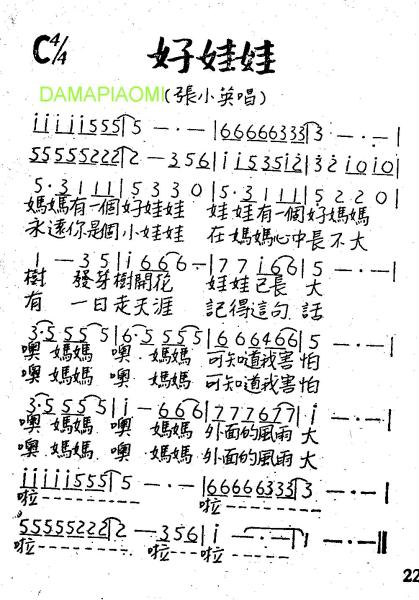 C4/4 好娃娃
DAMAPIAOMI (張小英唱)
i i i i i 5 5 5 5 | 5 — · — · | 6 6 6 6 6 3 3 3 | 3 — · — · |
5 5 5 5 5 2 2 2 | 2 — 3 5 6 | i i 5 3 5 i 2 | 3 2 i 0 i 0 |
5 · 3 1 1 1 | 5 3 3 0 | 5 · 3 1 1 1 | 5 2 2 0 |
媽媽有一個好娃娃 娃娃有一個好媽媽
永遠你是個小娃娃 在媽媽心中長不大
1 — 3 5 | i 6 6 6 — · | 7 7 i 6 6 | 5 — · — · |
樹 發芽樹開花 娃娃已長 大
有 一日走天涯 記得這句 話
3 · 5 5 5 5 | 6 · 5 5 5 5 | 6 6 6 4 6 6 | 5 — · — · |
噢 媽媽 噢 媽媽 可知道我害怕
噢 媽媽 噢 媽媽 可知道我害怕
3 · 5 5 5 5 | i — 6 6 6 | 7 7 7 6 7 7 | i — · — · |
噢 媽媽 噢 媽媽 外面的風雨 大
噢 媽媽 噢 媽媽 外面的風雨 大
i i i i i 5 5 5 | 5 — · — · | 6 6 6 6 6 3 3 3 | 3 — · — · |
啦 啦
5 5 5 5 5 2 2 2 | 2 — 3 5 6 | i — · — | i — · — ||
啦 啦 啦
22